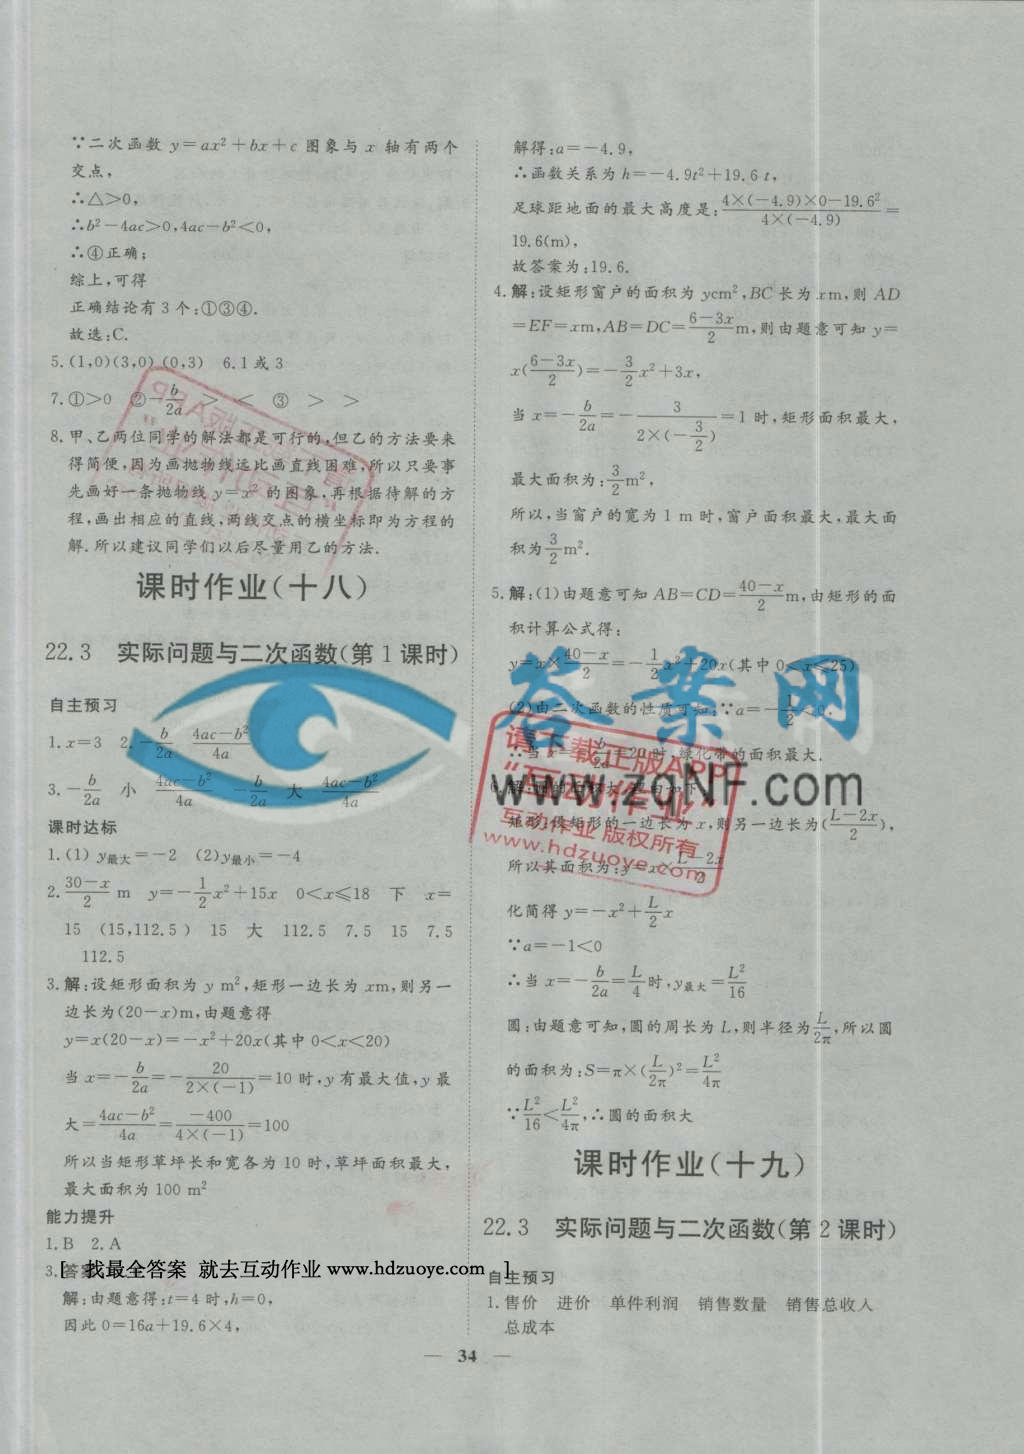 ∵二次函数 y=ax²+bx+c 图象与 x 轴有两个
交点,
∴△>0,
∴b²-4ac>0,4ac-b²<0,
∴④正确;
综上,可得
正确结论有 3 个:①③④.
故选:C.
5.(1,0)(3,0) (0,3) 6.1 或 3
7.①>0 ②-b/2a > < ③ > >
8.甲、乙两位同学的解法都是可行的,但乙的方法要来
得简便,因为画抛物线远比画直线困难,所以只要事
先画好一条抛物线 y=x² 的图象,再根据待解的方
程,画出相应的直线,两线交点的横坐标即为方程的
解.所以建议同学们以后尽量用乙的方法.
课时作业(十八)
22.3 实际问题与二次函数(第 1 课时)
自主预习
1.x=3 2.-b/2a (4ac-b²)/4a
3.-b/2a 小 (4ac-b²)/4a -b/2a 大 (4ac-b²)/4a
课时达标
1.(1) y最大=-2 (2)y最小=-4
2.(30-x)/2 m y=-1/2x²+15x 0<x≤18 下 x=
15 (15,112.5) 15 大 112.5 7.5 15 7.5
112.5
3.解:设矩形面积为 y m²,矩形一边长为 xm,则另一
边长为(20-x)m,由题意得
y=x(20-x)=-x²+20x(其中 0<x<20)
当 x=-b/2a=-20/(2×(-1))=10 时,y 有最大值,y 最
大=(4ac-b²)/4a=-400/(4×(-1))=100
所以当矩形草坪长和宽各为 10 时,草坪面积最大,
最大面积为 100 m²
能力提升
1.B 2.A
3.答案
[ 找最全答案 就去互动作业 www.hdzuoye.com ]
解:由题意得:t=4 时,h=0,
因此 0=16a+19.6×4,
解得:a=-4.9,
∴函数关系为 h=-4.9t²+19.6 t,
足球距地面的最大高度是:(4×(-4.9)×0-19.6²)/(4×(-4.9))=
19.6(m),
故答案为:19.6.
4.解:设矩形窗户的面积为 ycm²,BC 长为 xm,则 AD
=EF=xm,AB=DC=(6-3x)/2 m,则由题意可知 y=
x((6-3x)/2)=-3/2x²+3x,
当 x=-b/2a=-3/(2×(-3/2))=1 时,矩形面积最大,
最大面积为:3/2 m².
所以,当窗户的宽为 1 m 时,窗户面积最大,最大面
积为 3/2 m².
5.解:(1)由题意可知 AB=CD=(40-x)/2 m,由矩形的面
积计算公式得:
y=x×(40-x)/2=-1/2x²+20x(其中 0<x≤25)
(2)由二次函数的性质可知:∵a=-1/2<0.
∴当 x=-b/2a=20 时,绿化带的面积最大.
矩形:设矩形的一边长为 x,则另一边长为((L-2x)/2),
所以其面积为:y=x×(L-2x)/2
化简得 y=-x²+L/2x
∵a=-1<0
∴当 x=-b/2a=L/4 时,y最大=L²/16
圆:由题意可知,圆的周长为 L,则半径为 L/2π,所以圆
的面积为:S=π×(L/2π)²=L²/4π
∵L²/16<L²/4π,∴圆的面积大
课时作业(十九)
22.3 实际问题与二次函数(第 2 课时)
自主预习
1.售价 进价 单件利润 销售数量 销售总收入
总成本
— 34 —
答案网
www.zqNF.com
请下载正版APP
“互动作业”
互动作业 版权所有
www.hdzuoye.com